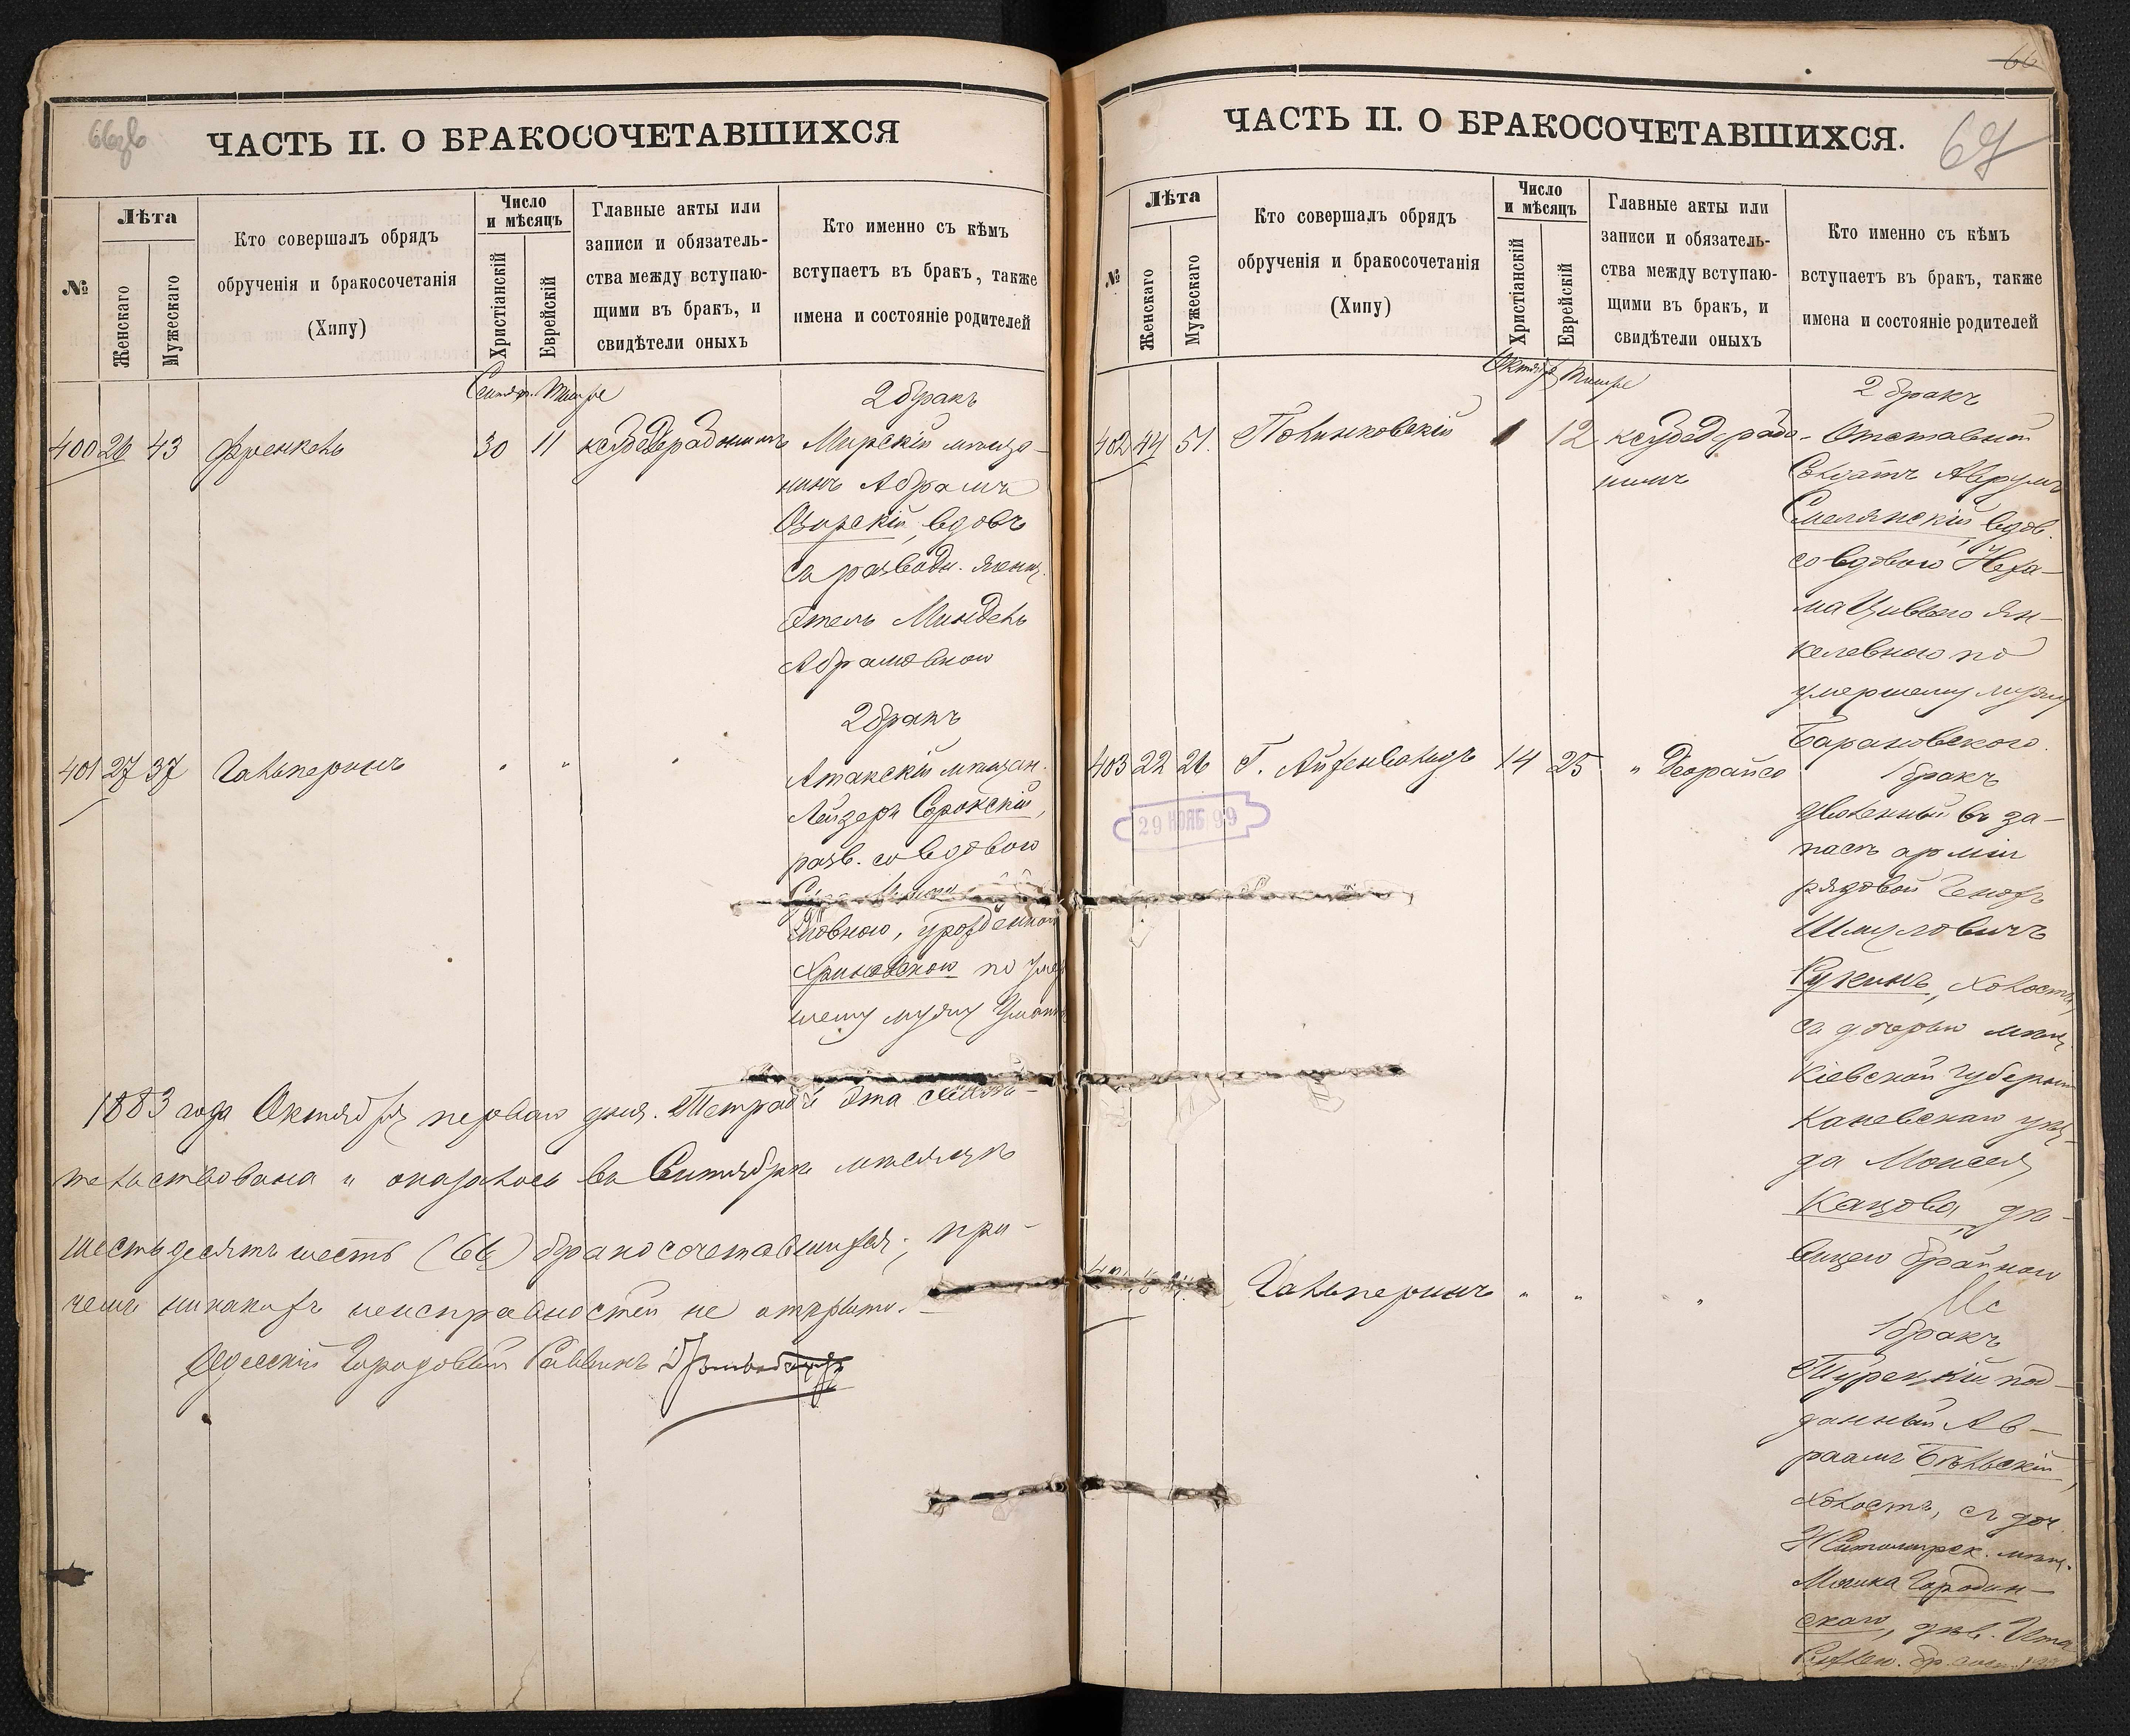 66об
ЧАСТЬ II. О БРАКОСОЧЕТАВШИХСЯ
№
Лѣта
Женскаго
Мужескаго
Кто совершалъ обрядъ
обрученія и бракосочетанія
(Хипу)
Число
и мѣсяцъ
Христіанскій
Еврейскій
Главные акты или
записи и обязатель-
ства между вступаю-
щими въ бракъ, и
свидѣтели оныхъ
Кто именно съ кѣмъ
вступаетъ въ бракъ, также
имена и состояніе родителей
Сентяб. Тишре
2 бракъ
400 26 43 Френкель 30 11 Мирскій мѣща-
нинъ Абрамъ
вдовъ
съ развод. женщ.
Этель Миндель
Абрамовною
2 бракъ
401 27 37 Гальперинъ " " "
Атакскій мѣщан.
Лейзеръ Сорокскій,
разв. со вдовою
ловною, урожденною
Хриновскою по умер
шему мужу
1883 года Октября перваго дня. Тетрадь эта свидѣ-
тельствована и оказалось въ Сентябрѣ мѣсяцѣ
шестьдесятъ шесть (66) бракосочетавшихся, при-
чемъ никакихъ неисправностей не открыто.
Одесскій Городовой Раввинъ
66
67
ЧАСТЬ II. О БРАКОСОЧЕТАВШИХСЯ.
№
Лѣта
Женскаго
Мужескаго
Кто совершалъ обрядъ
обрученія и бракосочетанія
(Хипу)
Число
и мѣсяцъ
Христіанскій
Еврейскій
Главные акты или
записи и обязатель-
ства между вступаю-
щими въ бракъ, и
свидѣтели оныхъ
Кто именно съ кѣмъ
вступаетъ въ бракъ, также
имена и состояніе родителей
Октября Тишре
2 бракъ
402 44 51. Полинковскій 1 12 Отставной
Солдатъ Аврумъ
Смелянскій вдов.
со вдовою Неха-
ма Цивьею Ян-
келевною по
умершему мужу
Барановскаго.
403 22 26 Г. Айзенвальдъ 14 25 " Деорайсо
29 НОЯБ 99
1 бракъ
Уволенный въ за-
пасъ арміи
рядовой Генохъ
Шмуловичъ
холостъ,
съ дочерью мѣщ.
Кіевской губерніи
Каневскаго уѣз-
да Моисея
Кацова, дѣ-
вицею Брайною
Гальперинъ " " "
1 бракъ
Турецкій под-
данный Ав-
раамъ Бѣльскій,
холостъ, съ доч.
Житомирск. мѣщ.
Городин-
скаго, дѣв.